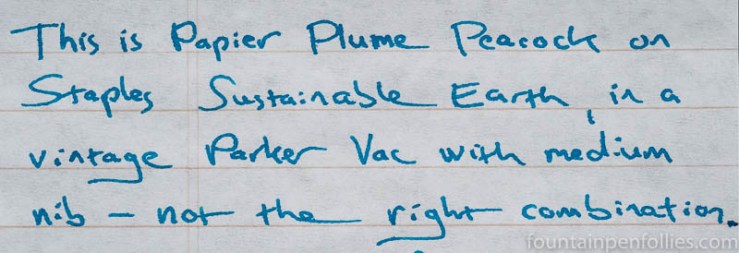 This is Papier Plume Peacock on
Staples Sustainable Earth, in a
vintage Parker Vac with medium
nib – not the right combination.
fountainpenfollies.com